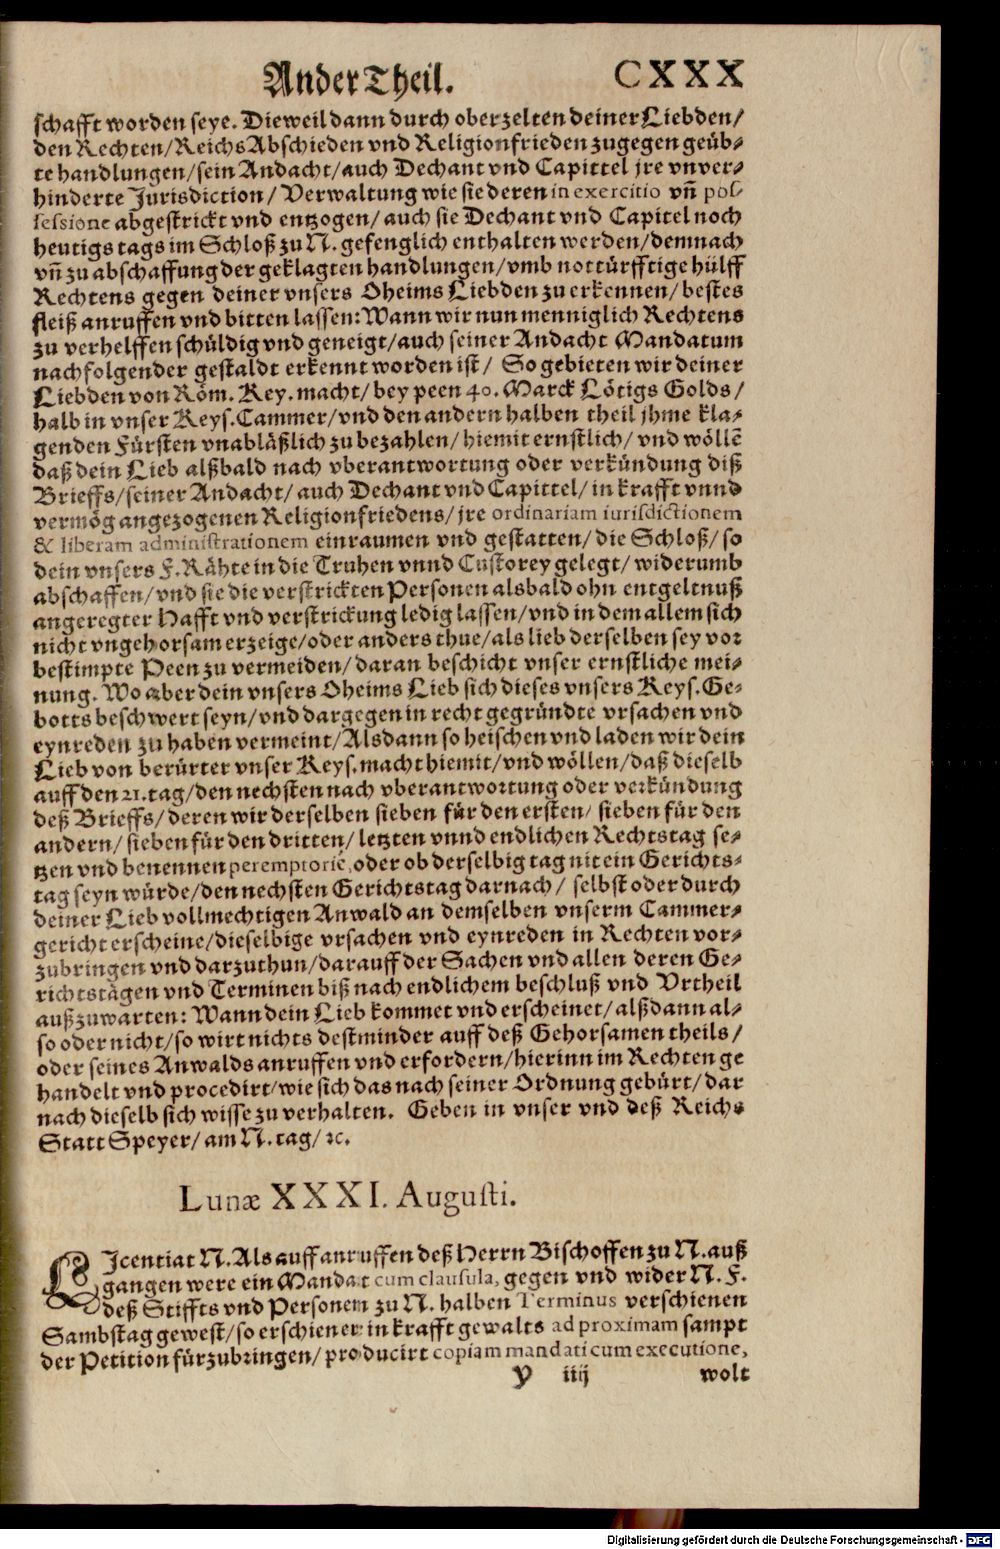 Ander Theil. CXXX
schafft worden seye. Dieweil dann durch oberzelten deiner Liebden/
den Rechten/ Reichs Abschieden vnd Religionfrieden zugegen geüb-
te handlungen/ sein Andacht/ auch Dechant vnd Capittel jre vnver-
hinderte Jurisdiction/ Verwaltung wie sie deren in exercitio vñ pos-
sessione abgestrickt vnd entzogen/ auch sie Dechant vnd Capitel noch
heutigs tags im Schloß zu N. gefenglich enthalten werden/ demnach
vñ zu abschaffung der geklagten handlungen/ vmb nottürfftige hülff
Rechtens gegen deiner vnsers Oheims Liebden zu erkennen/ bestes
fleiß anruffen vnd bitten lassen: Wann wir nun menniglich Rechtens
zu verhelffen schüldig vnd geneigt/ auch seiner Andacht Mandatum
nachfolgender gestaldt erkennt worden ist/ So gebieten wir deiner
Liebden von Röm. Key. macht/ bey peen 40. Marck Lötigs Golds/
halb in vnser Keys. Cammer/ vnd den andern halben theil jhme kla-
genden Fürsten vnabläßlich zu bezahlen/ hiemit ernstlich/ vnd wöllē
daß dein Lieb alßbald nach vberantwortung oder verkündung diß
Brieffs/ seiner Andacht/ auch Dechant vnd Capittel/ in krafft vnnd
vermög angezogenen Religionfriedens/ jre ordinariam iurisdictionem
& liberam administrationem einraumen vnd gestatten/ die Schloß/ so
dein vnsers F. Rähte in die Truhen vnnd Custorey gelegt/ widerumb
abschaffen/ vnd sie die verstrickten Personen alsbald ohn entgeltnuß
angeregter Hafft vnd verstrickung ledig lassen/ vnd in dem allem sich
nicht vngehorsam erzeige/ oder anders thue/ als lieb derselben sey vor
bestimpte Peen zu vermeiden/ daran beschicht vnser ernstliche mei-
nung. Wo aber dein vnsers Oheims Lieb sich dieses vnsers Keys. Ge-
botts beschwert seyn/ vnd dargegen in recht gegründte vrsachen vnd
eynreden zu haben vermeint/ Alsdann so heischen vnd laden wir dein
Lieb von berürter vnser Keys. macht hiemit/ vnd wöllen/ daß dieselb
auff den 21. tag/ den nechsten nach vberantwortung oder verkündung
deß Brieffs/ deren wir derselben sieben für den ersten/ sieben für den
andern/ sieben für den dritten/ letzten vnnd endlichen Rechtstag se-
tzen vnd benennen peremptoriè, oder ob derselbig tag nit ein Gerichts-
tag seyn würde/ den nechsten Gerichtstag darnach/ selbst oder durch
deiner Lieb vollmechtigen Anwald an demselben vnserm Cammer-
gericht erscheine/ dieselbige vrsachen vnd eynreden in Rechten vor-
zubringen vnd darzuthun/ darauff der Sachen vnd allen deren Ge-
richtstägen vnd Terminen biß nach endlichem beschluß vnd Vrtheil
außzuwarten: Wann dein Lieb kommet vnd erscheinet/ alßdann al-
so oder nicht/ so wirt nichts destminder auff deß Gehorsamen theils/
oder seines Anwalds anruffen vnd erfordern/ hierinn im Rechten ge
handelt vnd procedirt/ wie sich das nach seiner Ordnung gebürt/ dar
nach dieselb sich wisse zu verhalten. Geben in vnser vnd deß Reichs
Statt Speyer/ am N. tag/ ꝛc.
Lunæ XXXI. Augusti.
LIcentiat N. Als auff anruffen deß Herrn Bischoffen zu N. auß
gangen were ein Mandat cum clausula, gegen vnd wider N. F.
deß Stiffts vnd Personen zu N. halben Terminus verschienen
Sambstag gewest/ so erschiene er in krafft gewalts ad proximam sampt
der Petition fürzubringen/ producirt copiam mandati cum executione,
Y iiij wolt
Digitalisierung gefördert durch die Deutsche Forschungsgemeinschaft - DFG